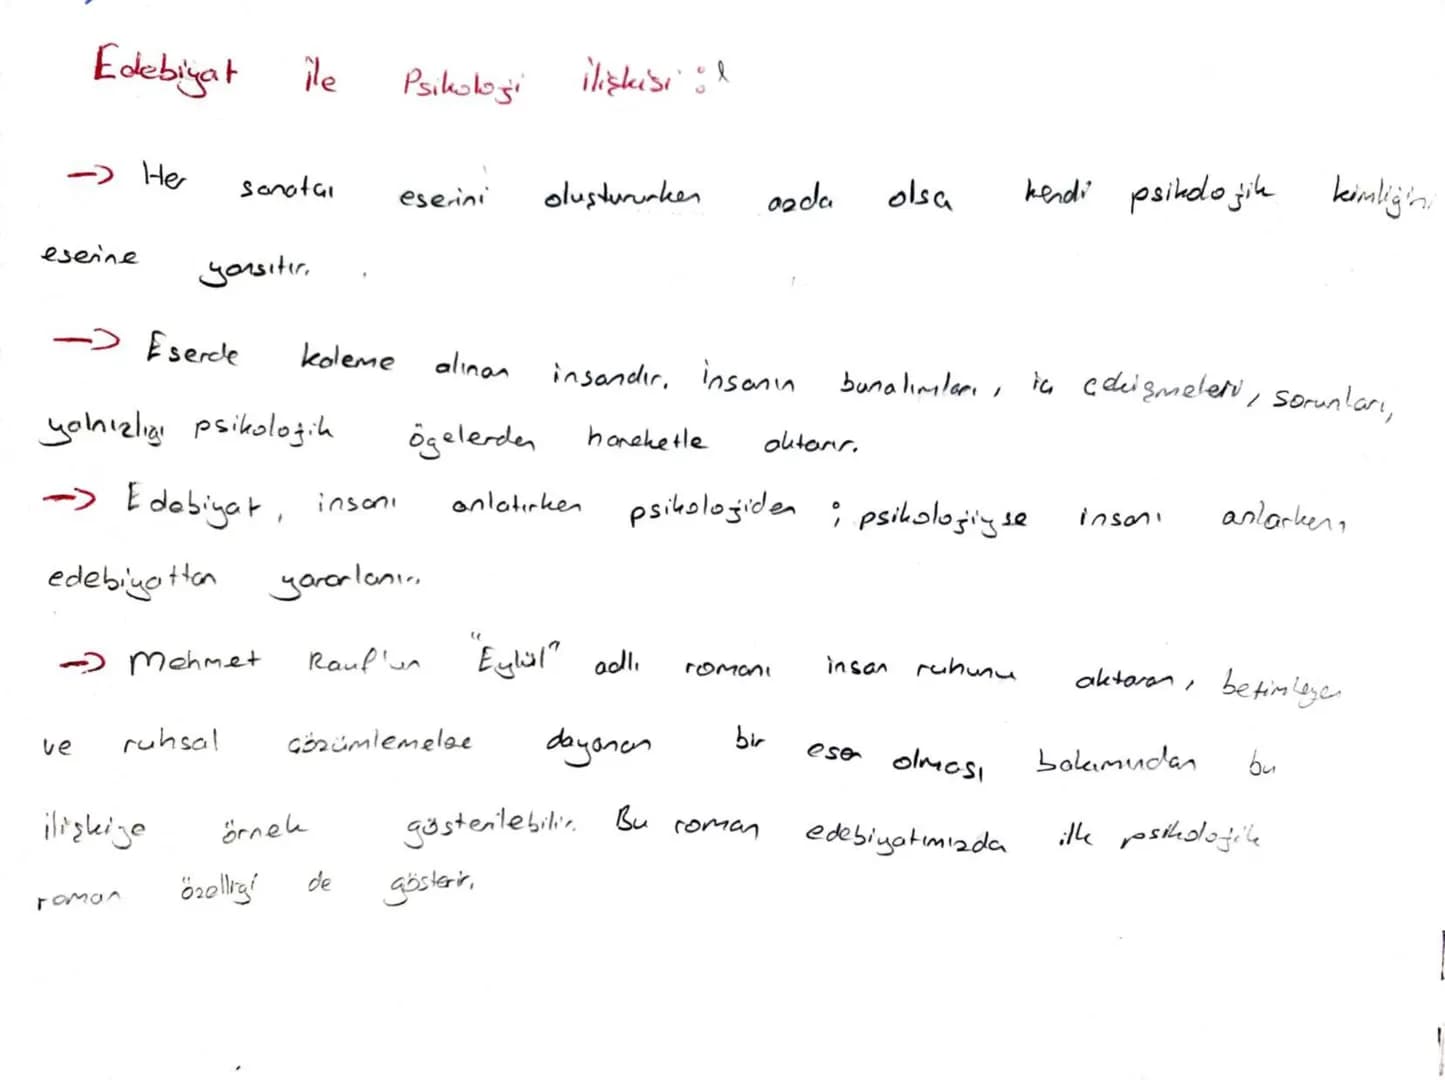 Edebiyat ile Psikoloji ilişkisi :
→ Her sanatçı eserini oluştururken azda olsa kendi psikolojik kimliğini
eserine yansıtır.
→ Eserde kaleme alınan insandır. İnsanın bunalımları, iç çekişmeleri, sorunları,
yalnızlığı psikolojik ögelerden hareketle aktarır.
→ Edebiyat, insanı anlatırken psikolojiden ; psikolojiyse insanı anlarken,
edebiyattan yararlanır.
→ Mehmet Rauf'un "Eylül" adlı romanı insan ruhunu aktaran, betimleyen
ve ruhsal çözümlemelere dayanan bir eser olması bakımından bu
ilişkiye örnek gösterilebilir. Bu roman edebiyatımızda ilk psikolojik
roman özelliği de gösterir.